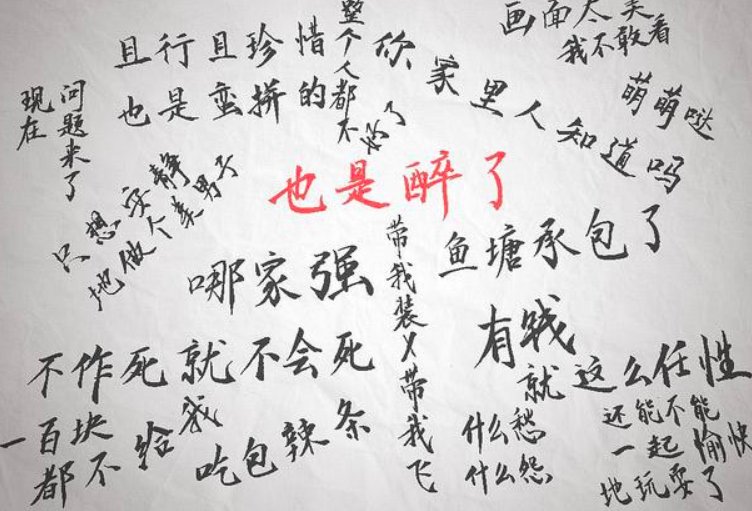 画面太美
我不敢看
且行且珍惜
整个人都不好了
你家里人知道吗
也是蛮拼的
萌萌哒
现在
问题来了
只想安静
地做个美男子
也是醉了
哪家强
带我装X带我飞
鱼塘承包了
有钱
就这么任性
不作死就不会死
一百块
都不给我
吃包辣条
什么愁
什么怨
还能不能
一起愉快
地玩耍了